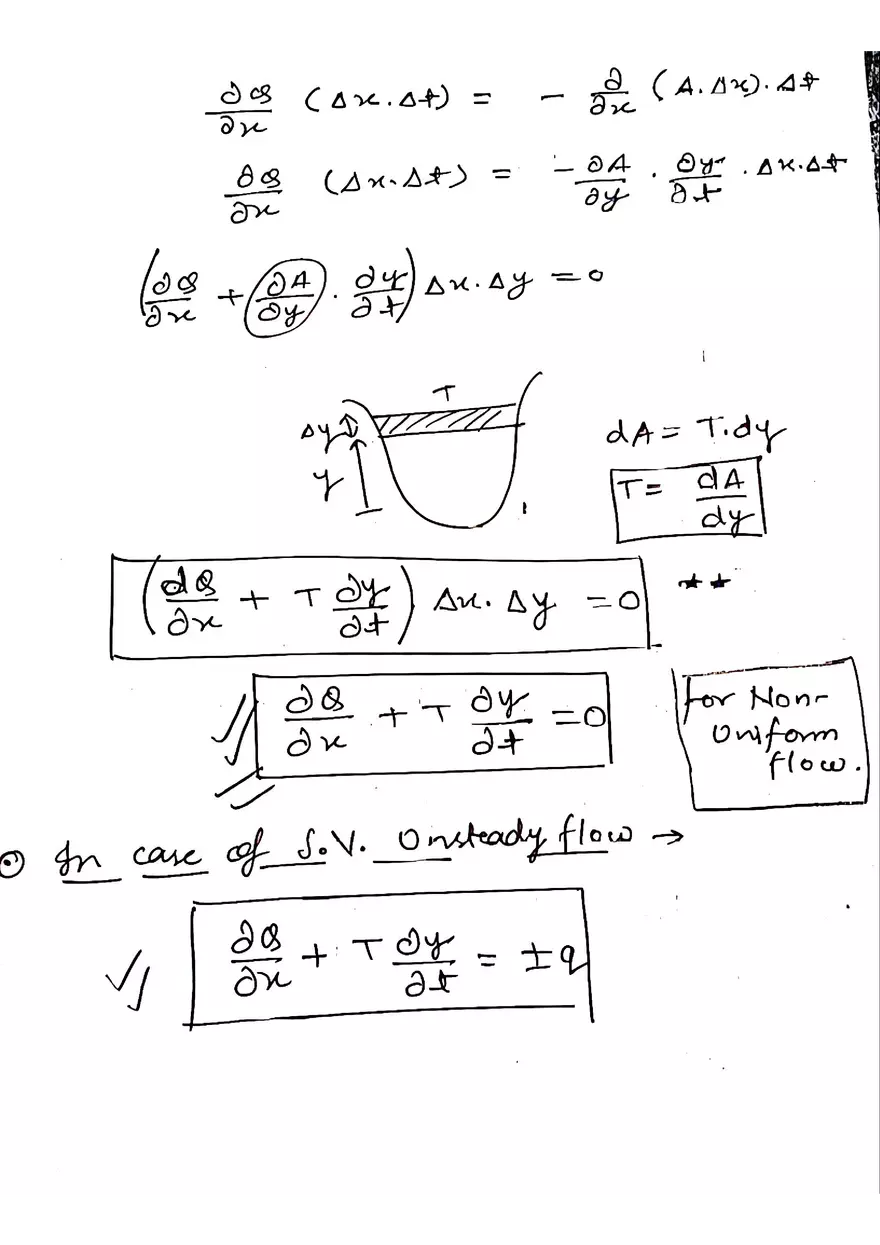 ∂Q/∂x (Δx.Δt) = - ∂/∂x (A.Δx).Δt
∂Q/∂x (Δx.Δt) = -∂A/∂y . ∂y/∂t . Δx.Δt
(∂Q/∂x + ∂A/∂y . ∂y/∂t) Δx.Δy = 0
T
Δy
y
dA = T.dy
T = dA/dy
(dQ/∂x + T ∂y/∂t) Δx. Δy = 0 **
∂Q/∂x + T ∂y/∂t = 0
for Non-
Uniform
flow.
In case of S.V. Unsteady flow →
∂Q/∂x + T ∂y/∂t = ±q